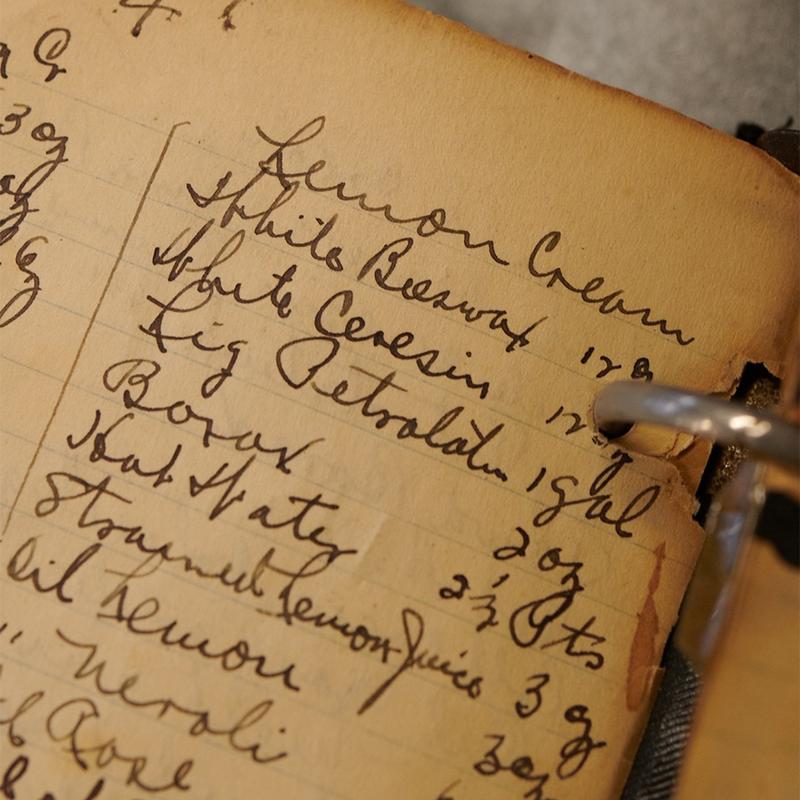 3 oz
Lemon Cream
White Beeswax 12 oz
White Ceresin 12
Liq Petrolatum 1 gal
Borax 2 oz
Hot Water 2 1/2 Pts
Strained Lemon Juice 3 oz
Oil Lemon 3 oz
" Neroli
Rose